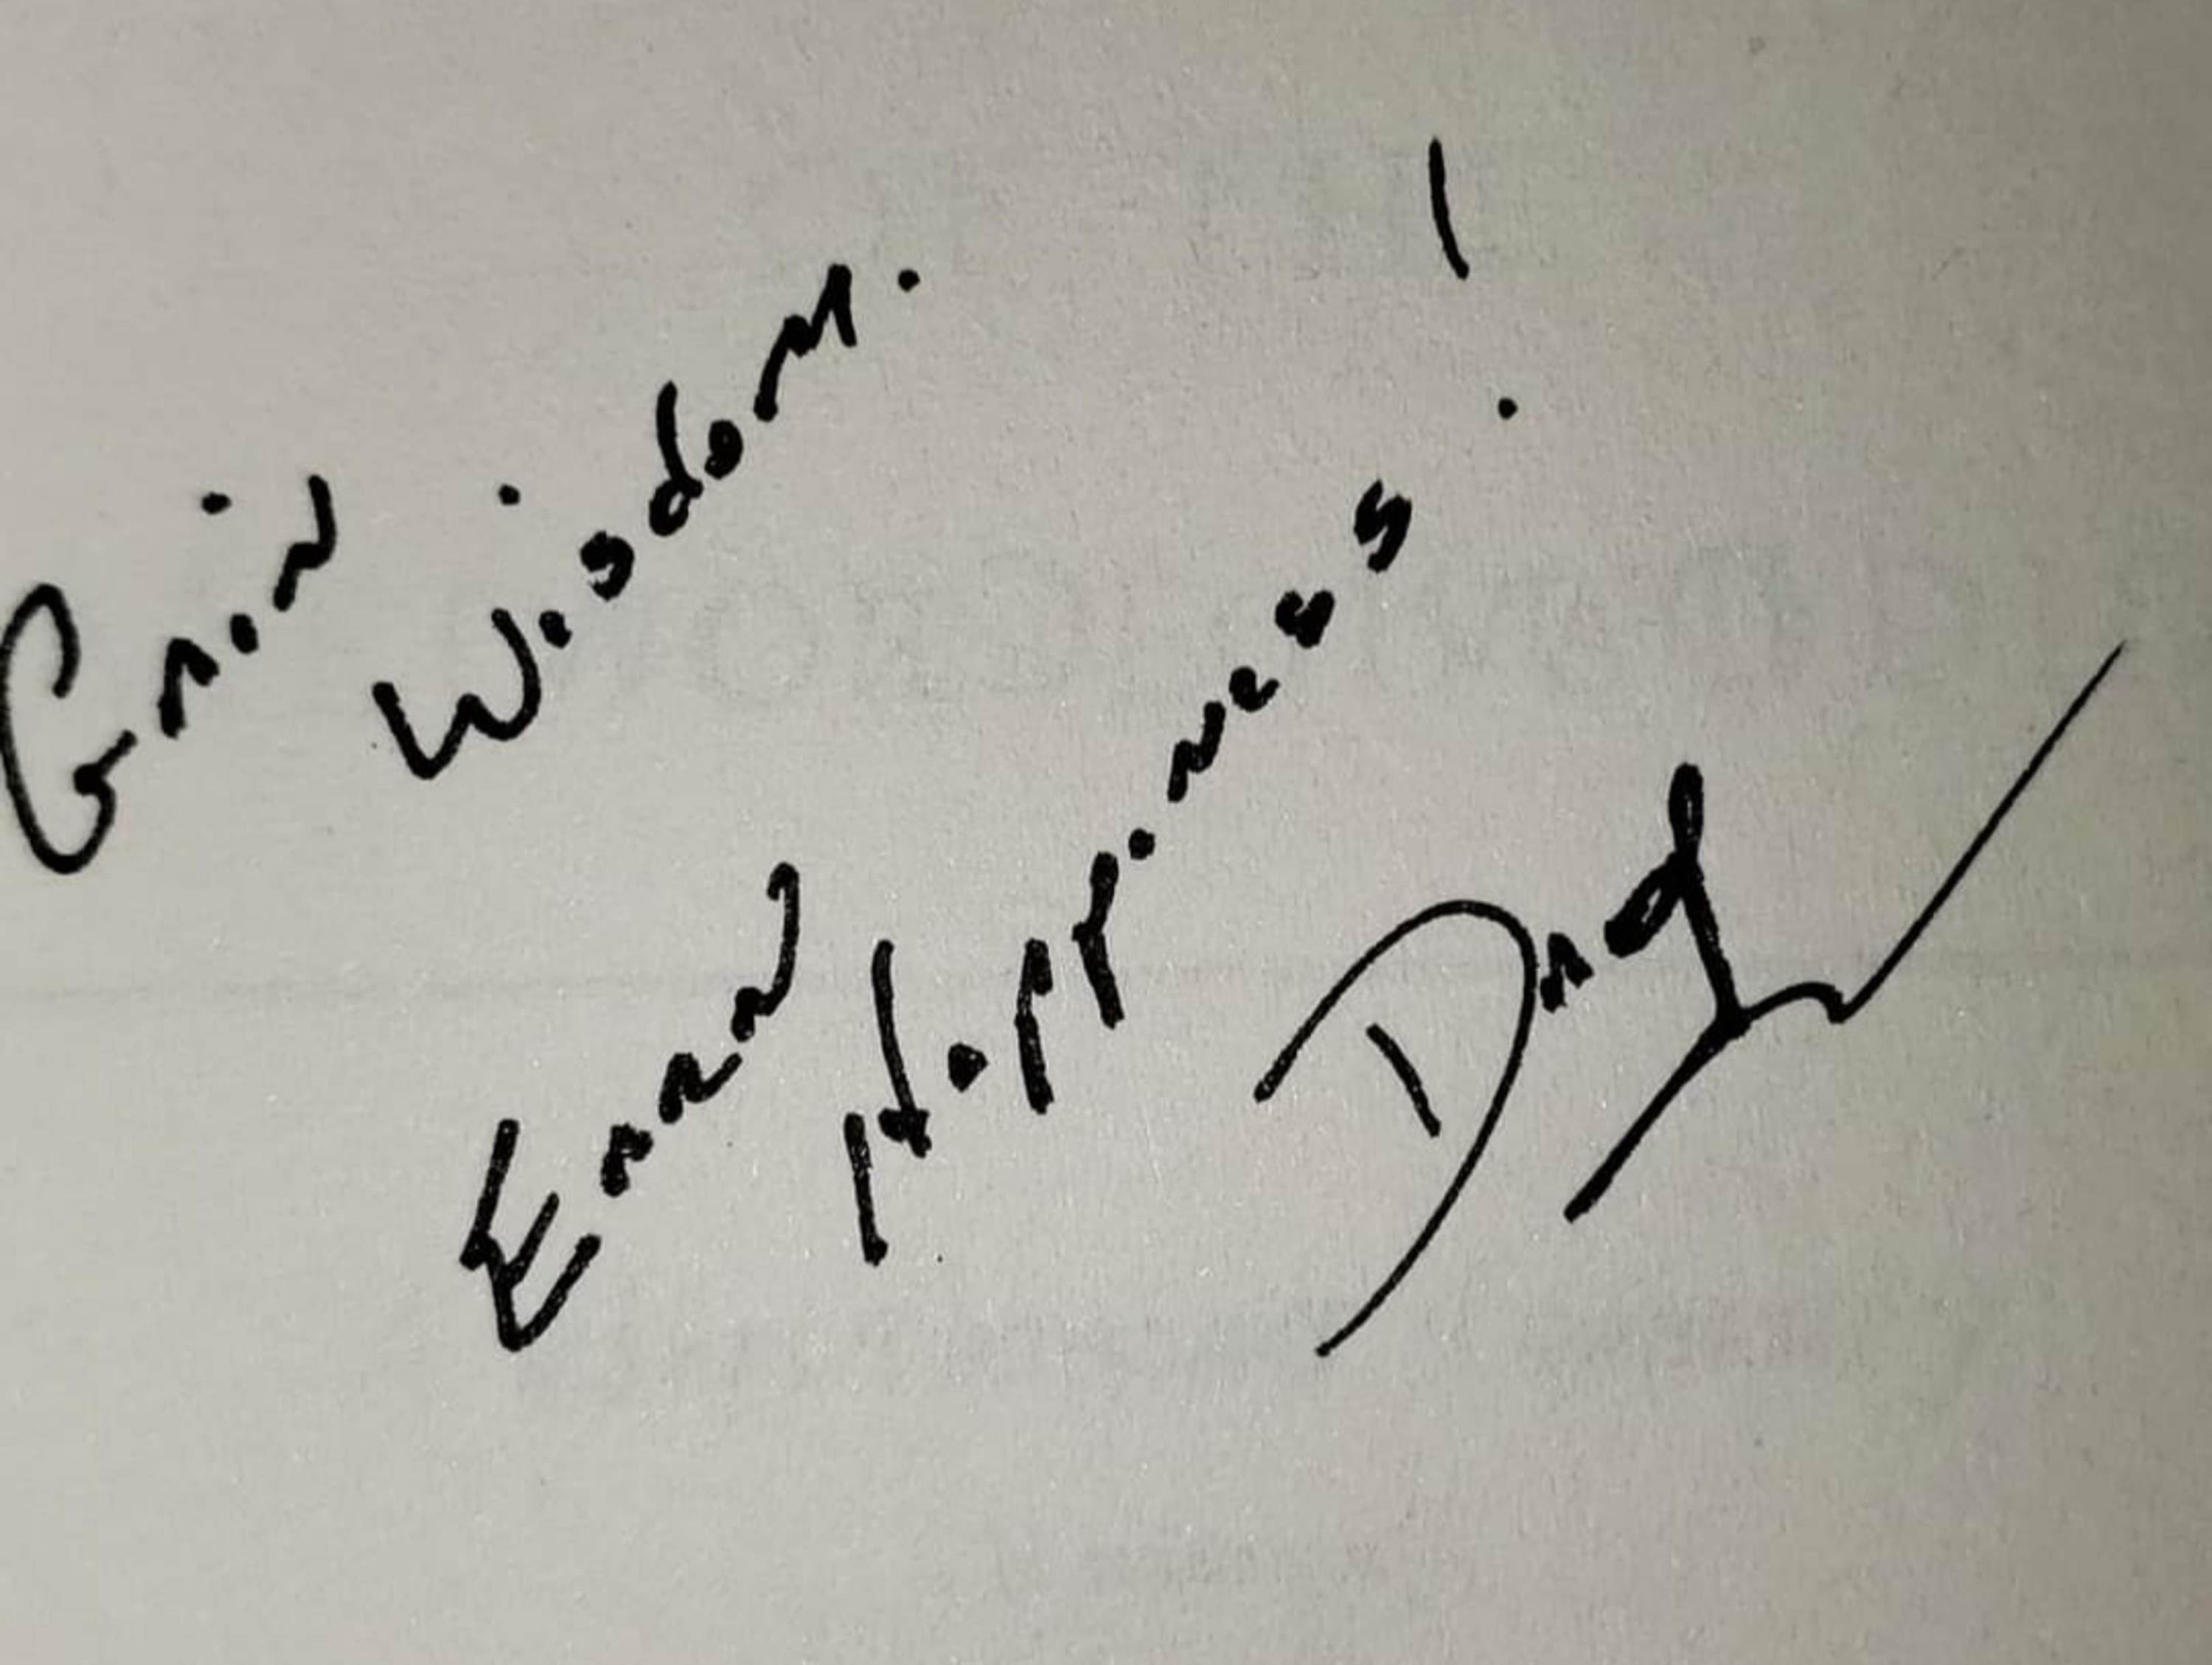 Gain Wisdom.
Earn Happiness!